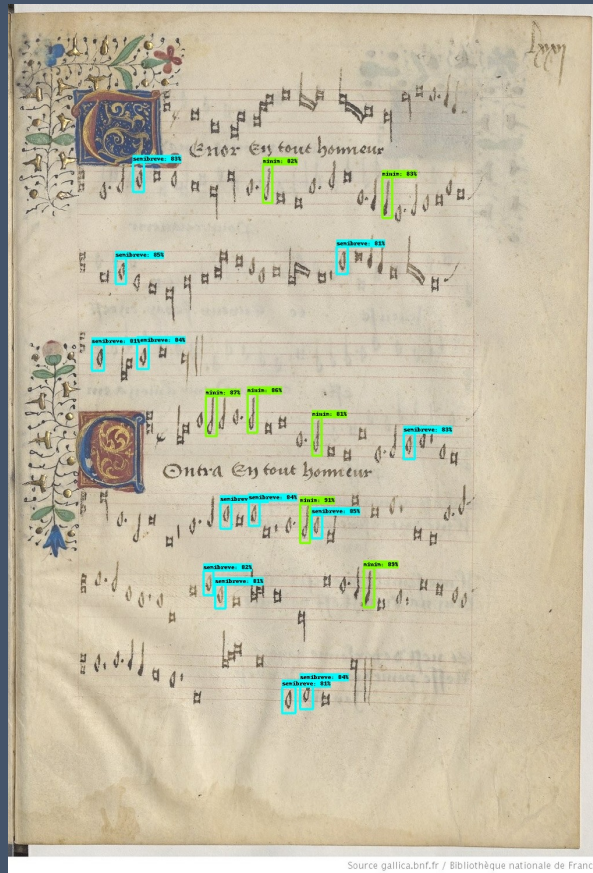 Tenor En tout honneur
semibreve: 83%
minim: 82%
minim: 83%
semibreve: 85%
semibreve: 81%
semibreve: 81%
semibreve: 84%
minim: 87%
minim: 86%
minim: 81%
semibreve: 83%
Contra En tout honneur
semibreve: 84%
minim: 91%
semibreve: 85%
semibreve: 82%
semibreve: 81%
minim: 89%
semibreve: 84%
semibreve: 81%
Source gallica.bnf.fr / Bibliothèque nationale de Franc